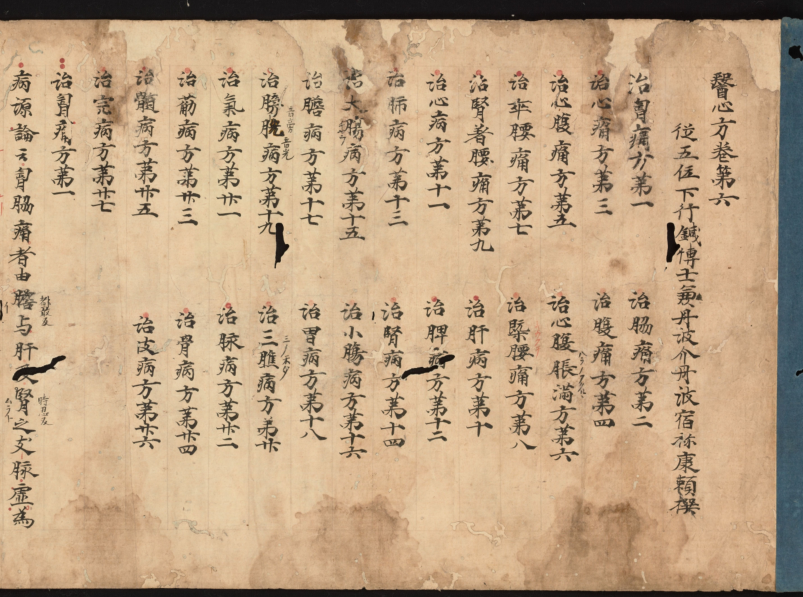 醫心方卷第六
従五位下行鍼博士兼丹波介丹波宿祢康頼撰
治胷痛方第一 治脇痛方第二
治心痛方第三 治腹痛方第四
治心腹痛方第五 治心腹脹滿方第六
治卒腰痛方第七 治腰痛方第八
治腎著腰痛方第九 治肝病方第十
治心病方第十一 治脾病方第十二
治肺病方第十三 治腎病方第十四
治大腸病方第十五 治小腸病方第十六
治膽病方第十七 治胃病方第十八
治膀胱病方第十九 治三膲病方第廿
治氣病方第廿一 治脉病方第廿二
治筋病方第廿三 治骨病方第廿四
治髓病方第廿五 治皮病方第廿六
治完病方第廿七
治胷痛方第一
病源論云胷脇痛者由膽与肝及腎之支脉虚為